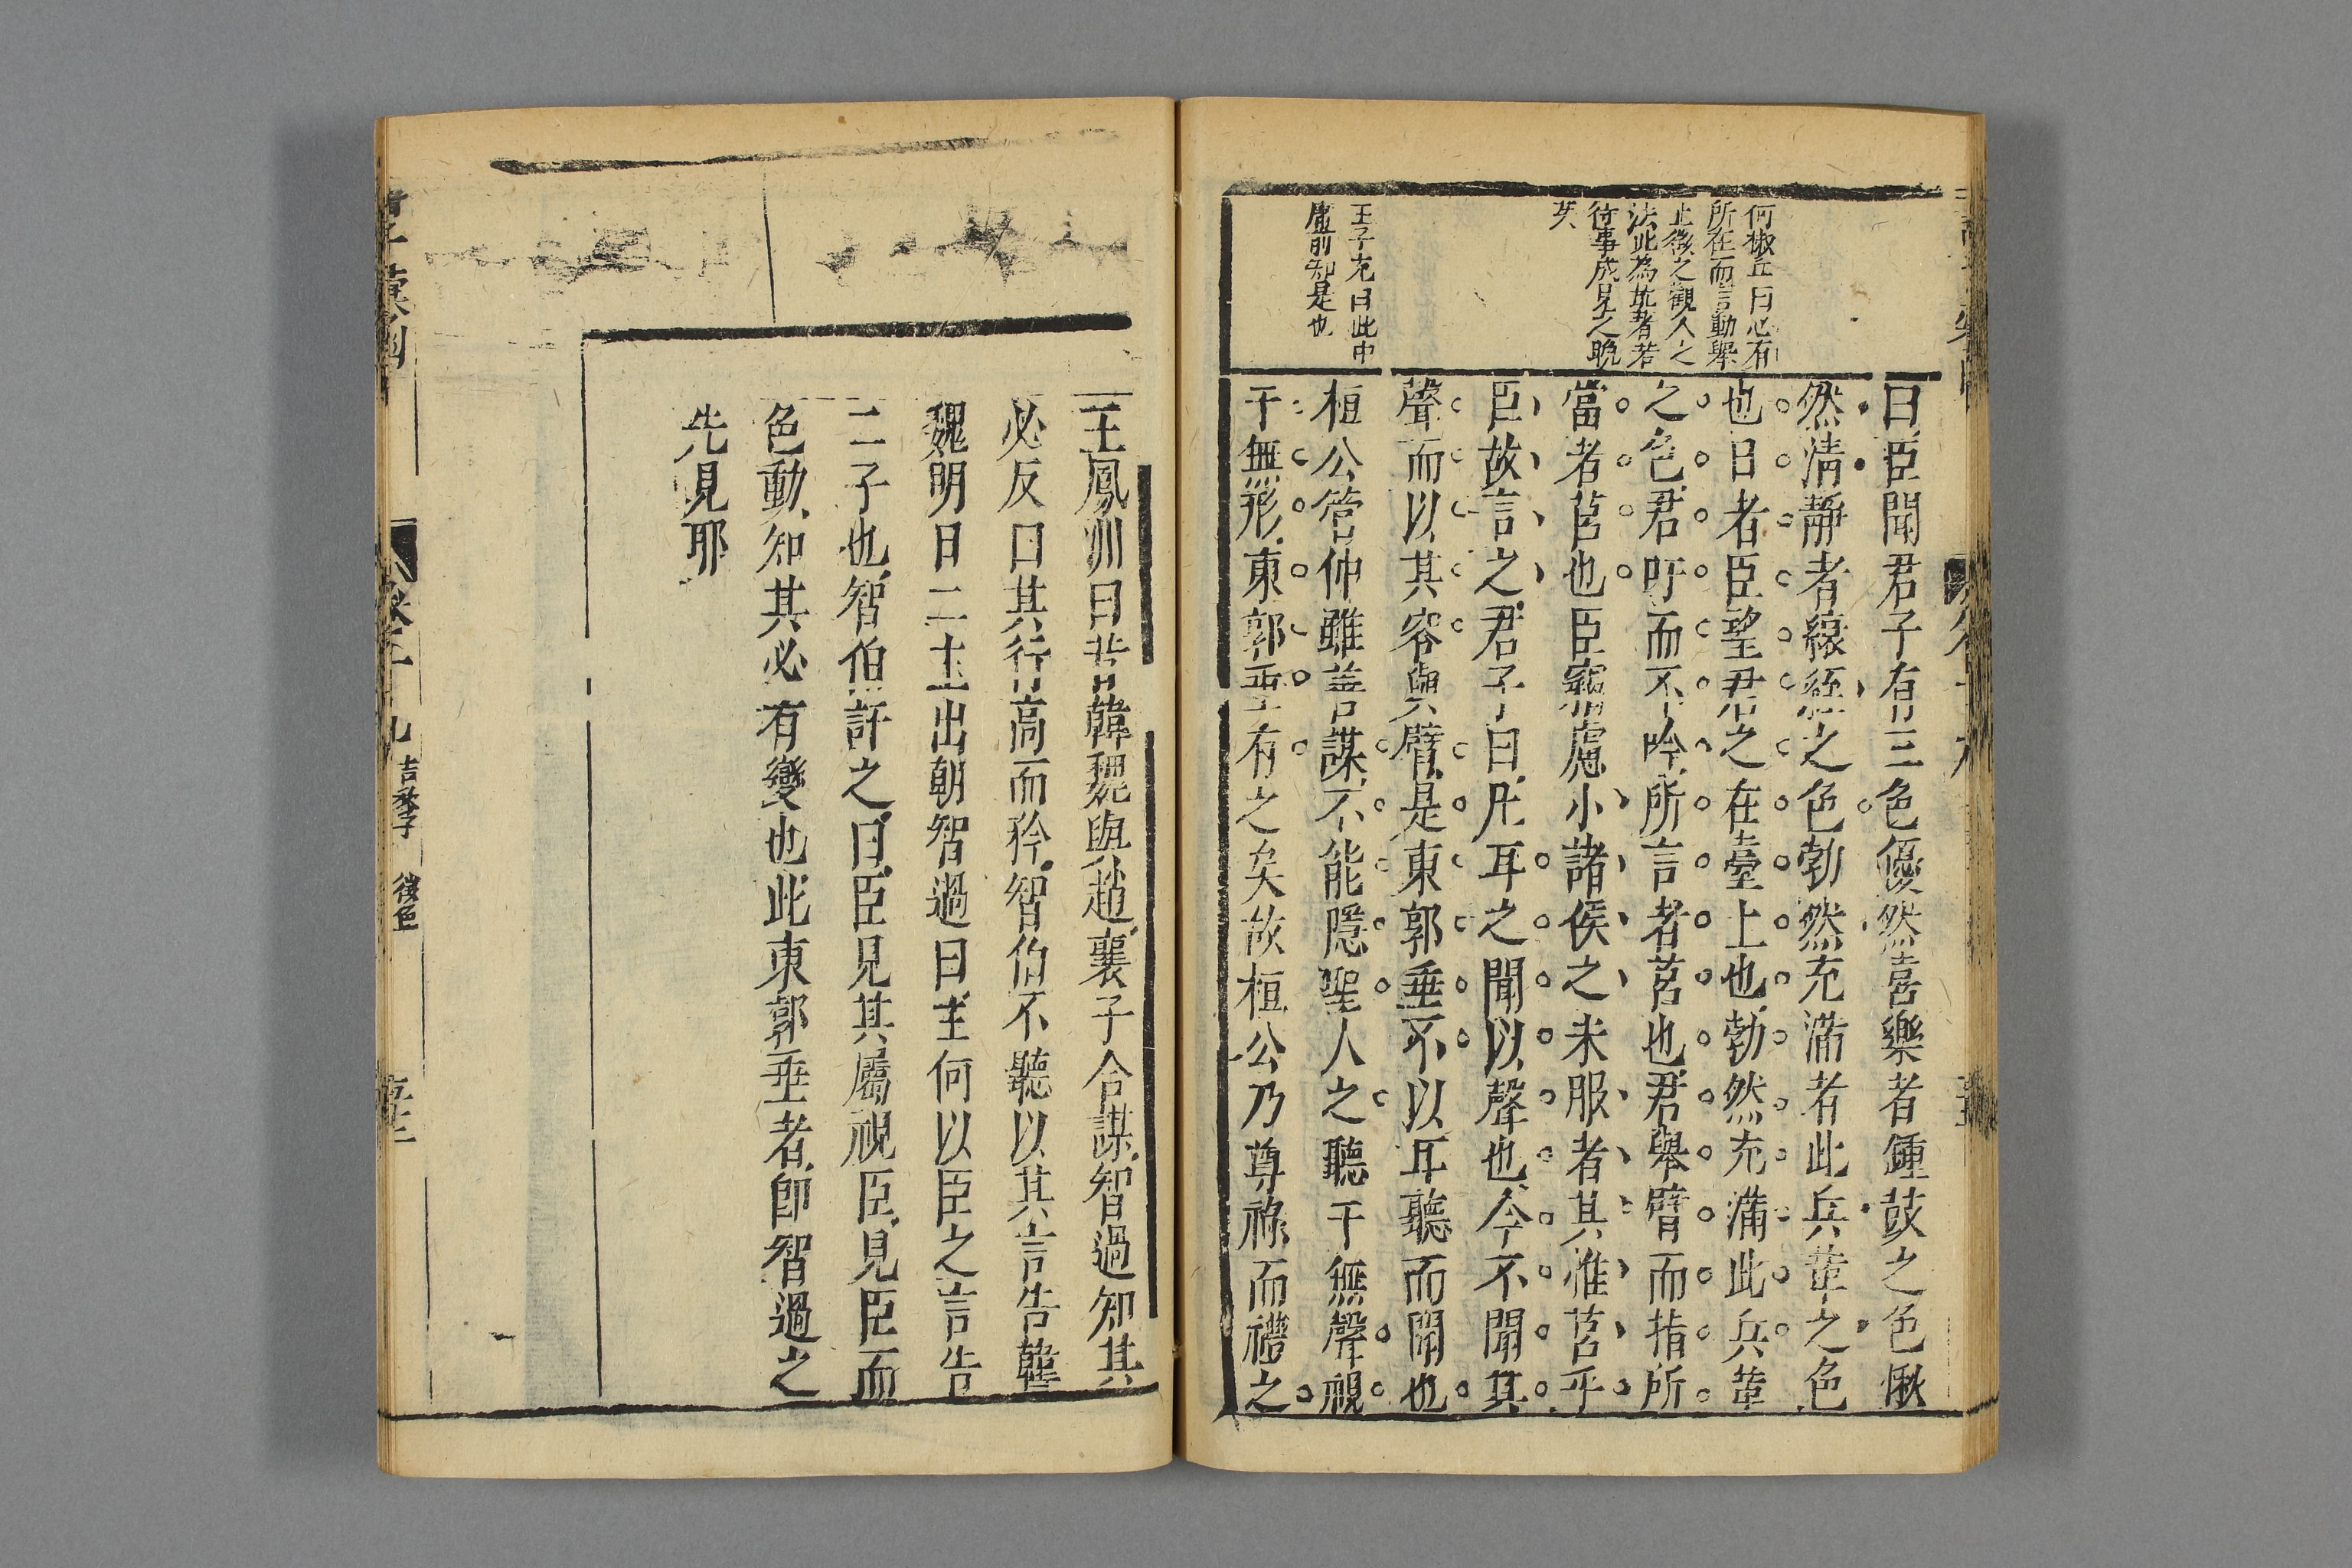 何椒丘曰必有
所在而言動舉
止徵之觀人之
法此為
待事成見之晚
矣
王子充曰此中
前知是也
曰臣聞君子有三色優然喜樂者鍾鼓之色愀
然清靜者縗絰之色勃然充滿者此兵革之色
也日者臣望君之在臺上也勃然充滿此兵革
之色君吁而不吟所言者莒也君舉臂而指所
當者莒也臣竊慮小諸侯之未服者其惟莒乎
臣故言之君子曰凡耳之聞以聲也今不聞其
聲而以其容與臂是東郭垂不以耳聽而聞也
桓公管仲雖善謀不能隱聖人之聽于無聲視
于無形東郭垂有之矣故桓公乃尊祿而禮之
王鳳洲曰昔韓魏與趙襄子合謀智過知其
必反曰其行高而矜智伯不聽以其言告韓
魏明日二主出朝智過曰主何以臣之言告
二子也智伯訝之曰臣見其屬視臣見臣而
色動知其必有變也此東郭垂者卽智過之
先見耶
卷
九
吉季子
徵色